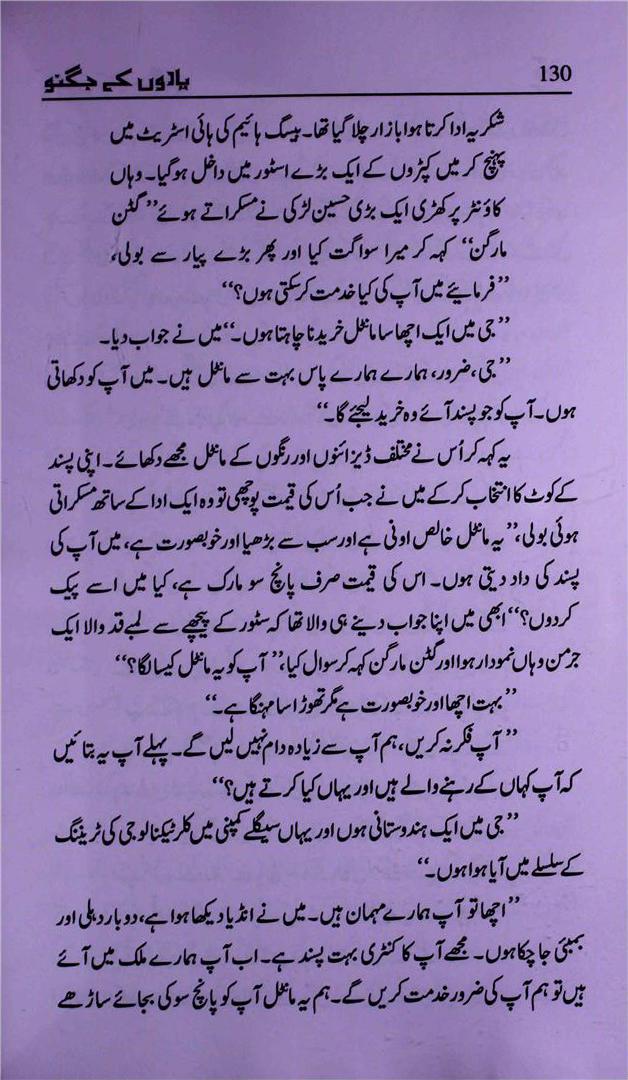 یادوں کے جگنو
130
شکریہ ادا کرتا ہوا بازار چلا گیا تھا۔ بیسگ ہائیم کی ہائی اسٹریٹ میں
پہنچ کر میں کپڑوں کے ایک بڑے اسٹور میں داخل ہوگیا۔ وہاں
کاؤنٹر پر کھڑی ایک بڑی حسین لڑکی نے مسکراتے ہوئے ”گٹن
مارگن“ کہہ کر میرا سواگت کیا اور پھر بڑے پیار سے بولی،
”فرمائیے میں آپ کی کیا خدمت کرسکتی ہوں؟“
”جی میں ایک اچھا سا مانٹل خریدنا چاہتا ہوں۔“ میں نے جواب دیا۔
”جی، ضرور، ہمارے ہمارے پاس بہت سے مانٹل ہیں۔ میں آپ کو دکھاتی
ہوں۔ آپ کو جو پسند آئے وہ خرید لیجئے گا۔“
یہ کہہ کر اُس نے مختلف ڈیزائنوں اور رنگوں کے مانٹل مجھے دکھائے۔ اپنی پسند
کے کوٹ کا انتخاب کر کے میں نے جب اُس کی قیمت پوچھی تو وہ ایک ادا کے ساتھ مسکراتی
ہوئی بولی، ”یہ مانٹل خالص اونی ہے اور سب سے بڑھیا اور خوبصورت ہے، میں آپ کی
پسند کی داد دیتی ہوں۔ اس کی قیمت صرف پانچ سو مارک ہے، کیا میں اسے پیک
کردوں؟“ ابھی میں اپنا جواب دینے ہی والا تھا کہ سٹور کے پیچھے سے لمبے قد والا ایک
جرمن وہاں نمودار ہوا اور گٹن مارگن کہہ کر سوال کیا، ”آپ کو یہ مانٹل کیسا لگا؟“
”بہت اچھا اور خوبصورت ہے مگر تھوڑا سا مہنگا ہے۔“
”آپ فکر نہ کریں، ہم آپ سے زیادہ دام نہیں لیں گے۔ پہلے آپ یہ بتائیں
کہ آپ کہاں کے رہنے والے ہیں اور یہاں کیا کرتے ہیں؟“
”جی میں ایک ہندوستانی ہوں اور یہاں سیگلے کمپنی میں کلر ٹیکنالوجی کی ٹریننگ
کے سلسلے میں آیا ہوا ہوں۔“
”اچھا تو آپ ہمارے مہمان ہیں۔ میں نے انڈیا دیکھا ہوا ہے، دو بار دہلی اور
بمبئی جا چکا ہوں۔ مجھے آپ کا کنٹری بہت پسند ہے۔ اب آپ ہمارے ملک میں آئے
ہیں تو ہم آپ کی ضرور خدمت کریں گے۔ ہم یہ مانٹل آپ کو پانچ سو کی بجائے ساڑھے